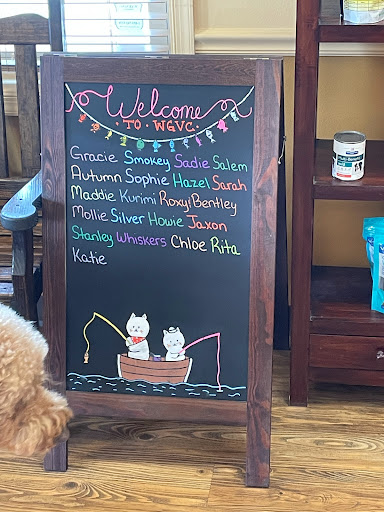 Welcome
• TO • WGVC •
Gracie Smokey Sadie Salem
Autumn Sophie Hazel Sarah
Maddie Kurimi Roxy&Bentley
Mollie Silver Howie Jaxon
Stanley Whiskers Chloe Rita
Katie